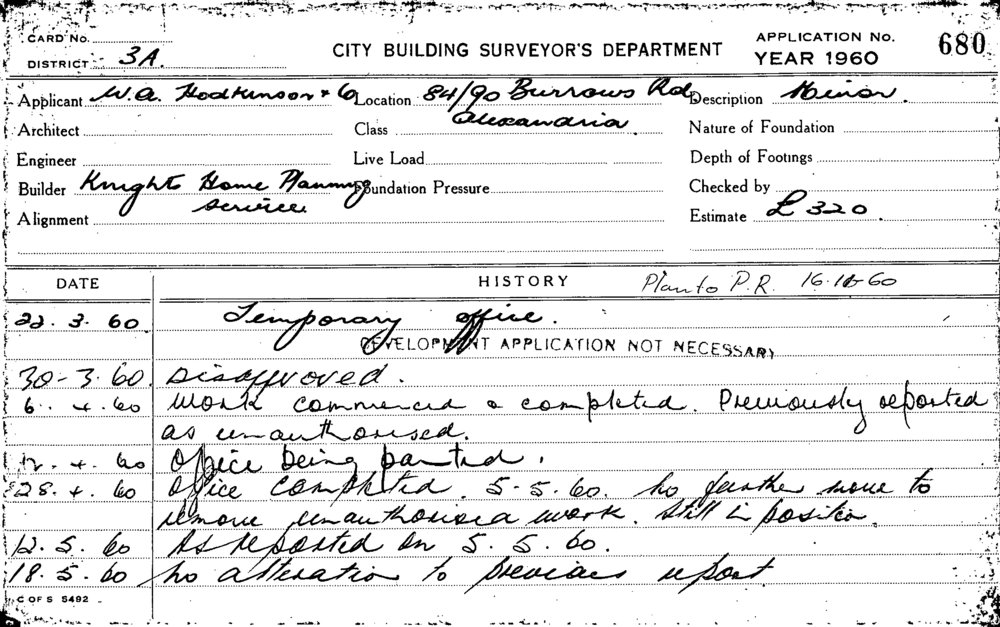 CARD No.
DISTRICT 3A.
CITY BUILDING SURVEYOR'S DEPARTMENT
APPLICATION No. 680
YEAR 1960
Applicant W.A. Hodkinson & Co Location 84/90 Burrows Rd, Description Minor.
Architect Class Alexandria. Nature of Foundation
Engineer Live Load Depth of Footings
Builder Knights Home Planning Foundation Pressure Checked by
service.
Alignment Estimate £320.
DATE HISTORY Plan to P.R. 16.11.60
22.3.60. Temporary office.
DEVELOPMENT APPLICATION NOT NECESSARY
30-3.60. Disapproved.
6.4.60 Work commenced & completed. Previously reported
as unauthorised.
12.4.60 Office being painted.
28.4.60 Office completed. 5-5.60. No further move to
remove unauthorised work. Still in position.
12.5.60 As reported on 5.5.60.
18.5.60 No alteration to previous report
C OF S 5492